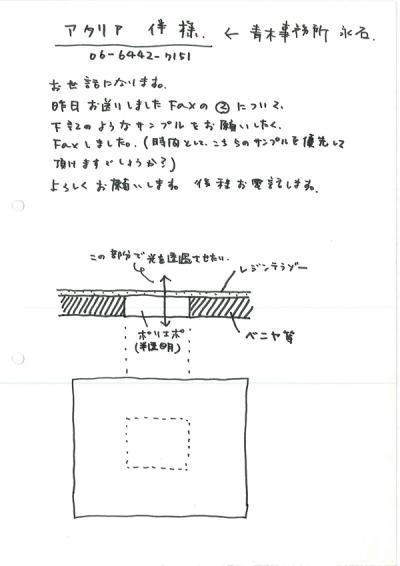 アタリア 伊 様. ← 青木事務所 永石.
06-6442-7151
お世話になります。
昨日 お送りしました Faxの ②について、
下記のようなサンプルをお願いしたく、
Faxしました。(時間として、こちらのサンプルを優先して
頂けますでしょうか?)
よろしくお願いします。 後程お電話します。
この部分で光を透過させたい.
レジンテラゾー
ポリエポ
(半透明)
ベニヤ等